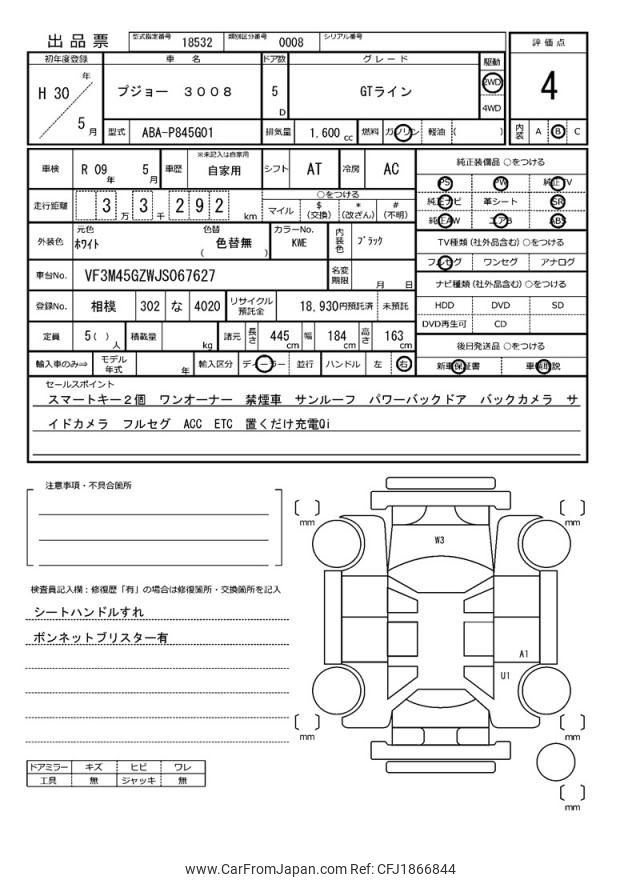 出品票 型式指定番号 18532 類別区分番号 0008 シリアル番号
評価点
4
内装 A B C
初年度登録 車 名 ドア数 グレード 駆動
H 30 年 5 月 プジョー 3008 5 D GTライン 2WD 4WD
型式 ABA-P845G01 排気量 1,600 cc 燃料 ガソリン 軽油 ( )
車検 R 09 年 5 月 車歴 ※未記入は自家用 自家用 シフト AT 冷房 AC
走行距離 3 万 3 千 2 9 2 km ○をつける
マイル $ (交換) * (改ざん) # (不明)
外装色 元色 ホワイト 色替 色替無 ( ) カラーNo. KWE 内装色 ブラック
車台No. VF3M45GZWJS067627 名変期限 月 日
登録No. 相模 302 な 4020 リサイクル預託金 18,930円預託済 未預託
定員 5( ) 人 積載量 kg 諸元 長さ 445 cm 幅 184 cm 高さ 163 cm
輸入車のみ⇒ モデル年式 年 輸入区分 ディーラー 並行 ハンドル 左 右
純正装備品 ○をつける
PS PW 純正TV
純正ナビ 革シート SR
純正AW エアB ABS
TV種類(社外品含む) ○をつける
フルセグ ワンセグ アナログ
ナビ種類(社外品含む) ○をつける
HDD DVD SD
DVD再生可 CD
後日発送品 ○をつける
新車保証書 車輌取説
セールスポイント
スマートキー2個 ワンオーナー 禁煙車 サンルーフ パワーバックドア バックカメラ サ
イドカメラ フルセグ ACC ETC 置くだけ充電Qi
注意事項・不具合箇所
検査員記入欄:修復歴「有」の場合は修復箇所・交換箇所を記入
シートハンドルすれ
ボンネットブリスター有
ドアミラー キズ ヒビ ワレ
工具 無 ジャッキ 無
[ ] mm
[ ] mm
W3
A1
U1
[ ] mm
[ ] mm
[ ] mm
www.CarFromJapan.com Ref: CFJ1866844